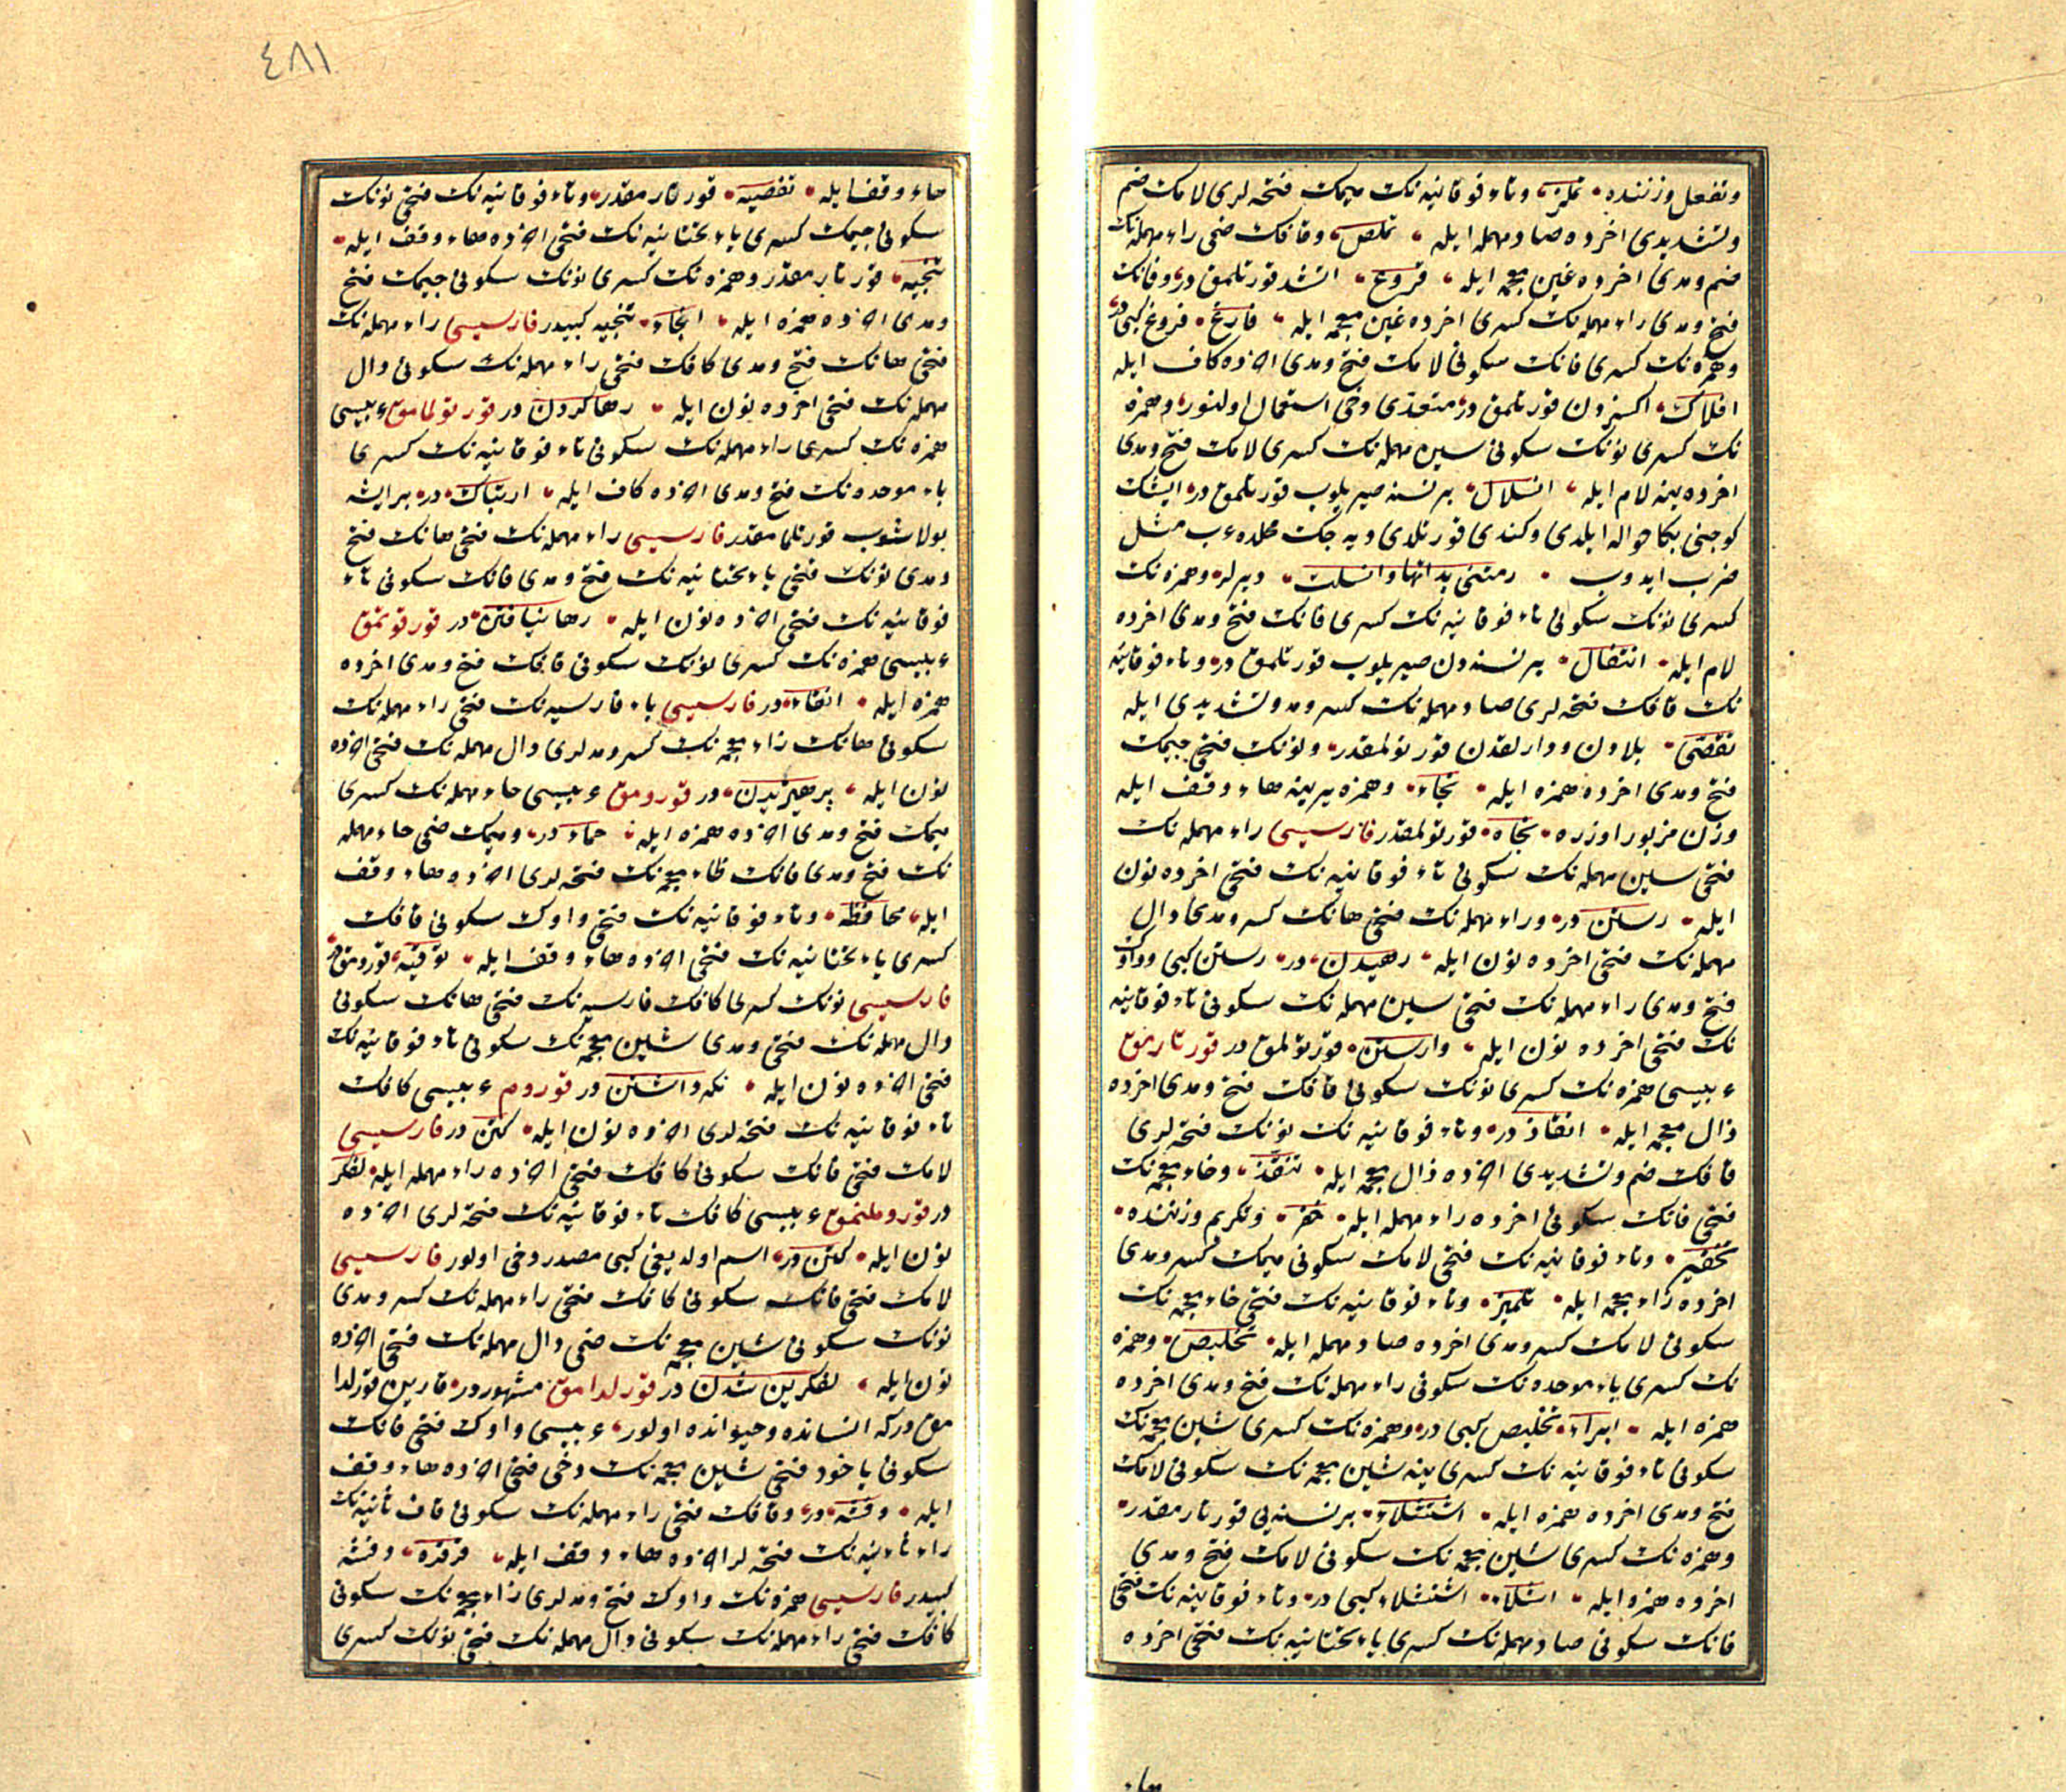 وتفعل وزننده تملز وتاء فوقانیه نك میمك فتحه لری لامك ضم
وتشدیدی اخرده صاد مهمله ایله تملص وقافك ضمی راء مهمله نك
ضم ومدی اخرده غین معجمه ایله فروغ اشد قورتلمق در وفانك
فتح ومدی راء مهمله نك كسری اخرده غین معجمه ایله فارغ فروغ كبی در
وهمزه نك كسری فانك سكونی لامك فتح ومدی اخرده كاف ایله
افلاك اكسزدن قورتلمق در متعدی دخی استعمال اولنور وهمزه
نك كسری نونك سكونی سین مهمله نك كسری لامك فتح ومدی
اخرده ینه لام ایله انسلال بر نسنه صیریلوب قورتلمق در ایشك
كوجنی بكا حواله ایلدی وكندی قورتلدی دیه جك محلده ءب مثل
ضرب ایدوب رمتنی بدائها وانسلت دیرلر وهمزه نك
كسری نونك سكونی تاء فوقانیه نك كسری فانك فتح ومدی اخرده
لام ایله انتفال بر نسنه دن صیریلوب قورتلمق در وتاء فوقانیه
نك فافك فتحه لری صاد مهمله نك كسر ومد وتشدیدی ایله
تفصی بلادن ودارلقدن قورتولمقدر ونونك فتحی جیمك
فتح ومدی اخرده همزه ایله نجاء وهمزه یرینه هاء وقف ایله
وزن مزبور اوزره نجاه قورتولمقدر فارسیسی راء مهمله نك
فتحی سین مهمله نك سكونی تاء فوقانیه نك فتحی اخرده نون
ایله رستن در وراء مهمله نك فتحی هانك كسر ومدی دال
مهمله نك فتحی اخرده نون ایله رهیدن در رستن كبی وواوك
فتح ومدی راء مهمله نك فتحی سین مهمله نك سكونی تاء فوقانیه
نك فتحی اخرده نون ایله وارستن قورتولمق در قورتارمق
ءبیسی همزه نك كسری نونك سكونی قافك فتح ومدی اخرده
ذال معجمه ایله انقاذ در وتاء فوقانیه نك نونك فتحه لری
قافك ضم وتشدیدی اخرده ذال معجمه ایله تنقذ وخاء معجمه نك
فتحی فانك سكونی اخرده راء مهمله ایله خفر وتكریم وزننده
تخفیر وتاء فوقانیه نك فتحی لامك سكونی میمك كسر ومدی
اخرده زاء معجمه ایله تلمیز وتاء فوقانیه نك فتحی خاء معجمه نك
سكونی لامك كسر ومدی اخرده صاد مهمله ایله تخلیص وهمزه
نك كسری باء موحده نك سكونی راء مهمله نك فتح ومدی اخرده
همزه ایله ابراء تخلیص كبی در وهمزه نك كسری شین معجمه نك
سكونی تاء فوقانیه نك كسری ینه شین معجمه نك سكونی لامك
فتح ومدی اخرده همزه ایله اشتشلاء بر نسنه یی قورتارمقدر
وهمزه نك كسری شین معجمه نك سكونی لامك فتح ومدی
اخرده همزه ایله اشلاء اشتشلاء كبی در وتاء فوقانیه نك فتحی
فانك سكونی صاد مهمله نك كسری یاء تحتانیه نك فتحی اخرده
هاء
٤٨١
هاء وقف ایله تفصیه قورتارمقدر وتاء فوقانیه نك فتحی نونك
سكونی جیمك كسری یاء تحتانیه نك فتحی اخرده هاء وقف ایله
تنجیه قورتارمقدر وهمزه نك كسری نونك سكونی جیمك فتح
ومدی اخرده همزه ایله انجاء تنجیه كبیدر فارسیسی راء مهمله نك
فتحی هانك فتح ومدی كافك فتحی راء مهمله نك سكونی دال
مهمله نك فتحی اخرده نون ایله رها كردن در قورتولمامق ءبیسی
همزه نك كسری راء مهمله نك سكونی تاء فوقانیه نك كسری
باء موحده نك فتح ومدی اخرده كاف ایله ارتباك در بر ایشه
بولاشوب قورتلمامقدر فارسیسی راء مهمله نك فتحی هانك فتح
ومدی نونك فتحی یاء تحتانیه نك فتح ومدی فانك سكونی تاء
فوقانیه نك فتحی اخرده نون ایله رها نیافتن در قورقوتمق
ءبیسی همزه نك كسری نونك سكونی قافك فتح ومدی اخرده
همزه ایله انقاء در فارسیسی باء فارسیه نك فتحی راء مهمله نك
سكونی هانك زاء معجمه نك كسر ومدلری دال مهمله نك فتحی اخرده
نون ایله پرهیزیدن در قورومق ءبیسی حاء مهمله نك كسری
میمك فتح ومدی اخرده همزه ایله حماء در ومیمك ضمی حاء مهمله
نك فتح ومدی فانك ظاء معجمه نك فتحه لری اخرده هاء وقف
ایله محافظه وتاء فوقانیه نك فتحی واوك سكونی قافك
كسری یاء تحتانیه نك فتحی اخرده هاء وقف ایله توقیه قورومق در
فارسیسی نونك كسری كافك فارسیه نك فتحی هانك سكونی
دال مهمله نك فتحی ومدی شین معجمه نك سكونی تاء فوقانیه نك
فتحی اخرده نون ایله نكه داشتن در قوروم ءبیسی كافك
تاء فوقانیه نك فتحه لری اخرده نون ایله كتن در فارسیسی
لامك فتحی فانك سكونی كافك فتحی اخرده راء مهمله ایله لفكر
در قوروملنمق ءبیسی كافك تاء فوقانیه نك فتحه لری اخرده
نون ایله كتن در اسم اولدیغی كبی مصدر دخی اولور فارسیسی
لامك فتحی فانك سكونی كافك فتحی راء مهمله نك كسر ومدی
نونك سكونی شین معجمه نك ضمی دال مهمله نك فتحی اخرده
نون ایله لفكرین شدن در قورلدامق مشهوردر قارین قورلدا
مق دركه انسانده وحیوانده اولور ءبیسی واوك فتحی فانك
سكونی یاخود فتحی شین معجمه نك دخی فتحی اخرده هاء وقف
ایله وفشه در وقافك فتحی راء مهمله نك سكونی قاف ثانیه نك
راء ثانیه نك فتحه لر اخرده هاء وقف ایله قرقره وفشه
كبیدر فارسیسی همزه نك واوك فتح ومدلری زاء معجمه نك سكونی
كافك فتحی راء مهمله نك سكونی دال مهمله نك فتحی نونك كسری